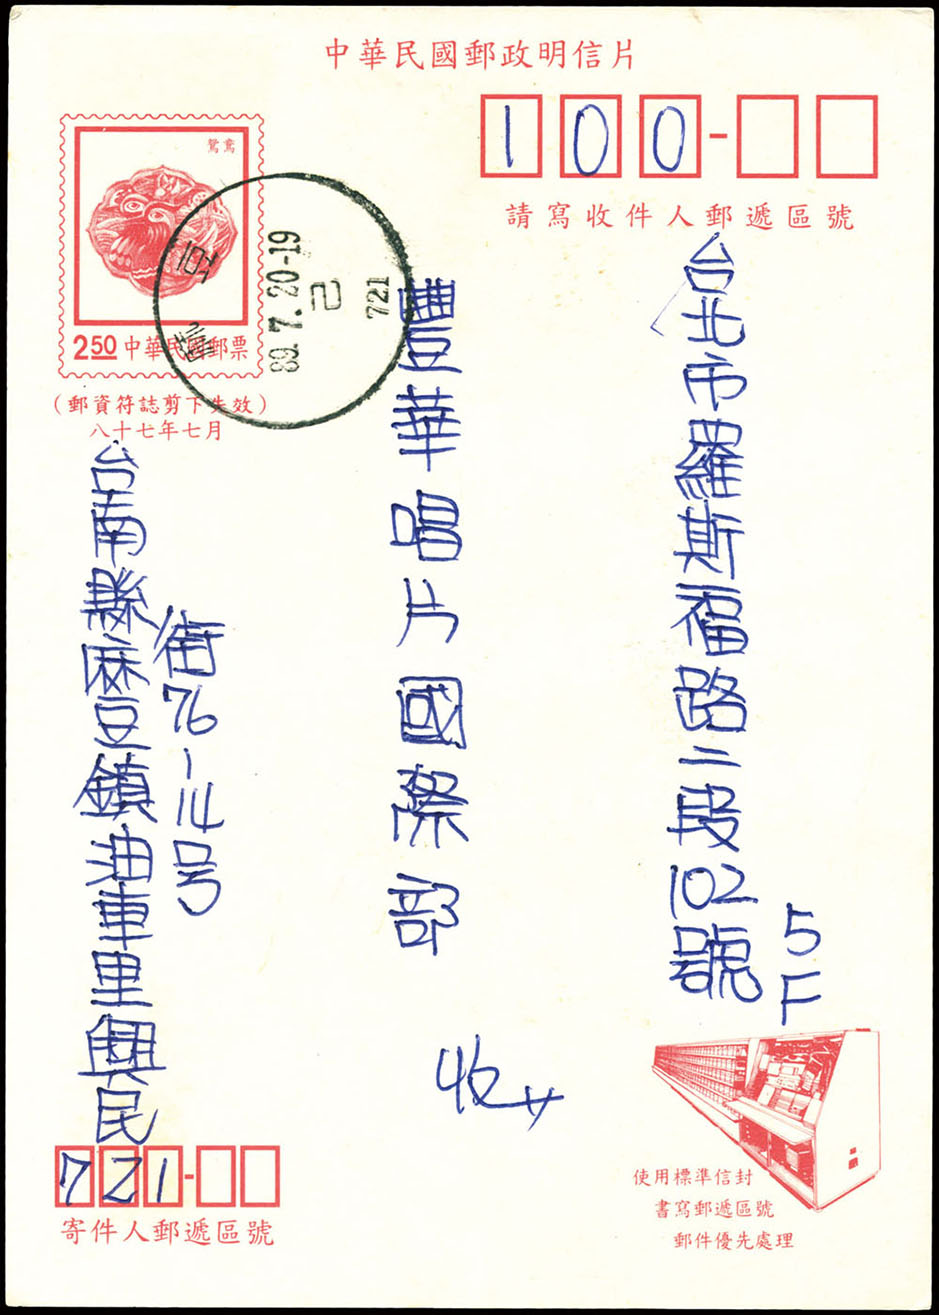 中華民國郵政明信片
100-
請寫收件人郵遞區號
台北市羅斯福路二段102號
5F
豐華唱片國際部
收
鴛鴦
2.50 中華民國郵票
(郵資符誌剪下失效)
八十七年七月
豆
89.7.20-19
己
721
台南縣麻豆鎮油車里興民
街76-14号
721-
寄件人郵遞區號
使用標準信封
書寫郵遞區號
郵件優先處理